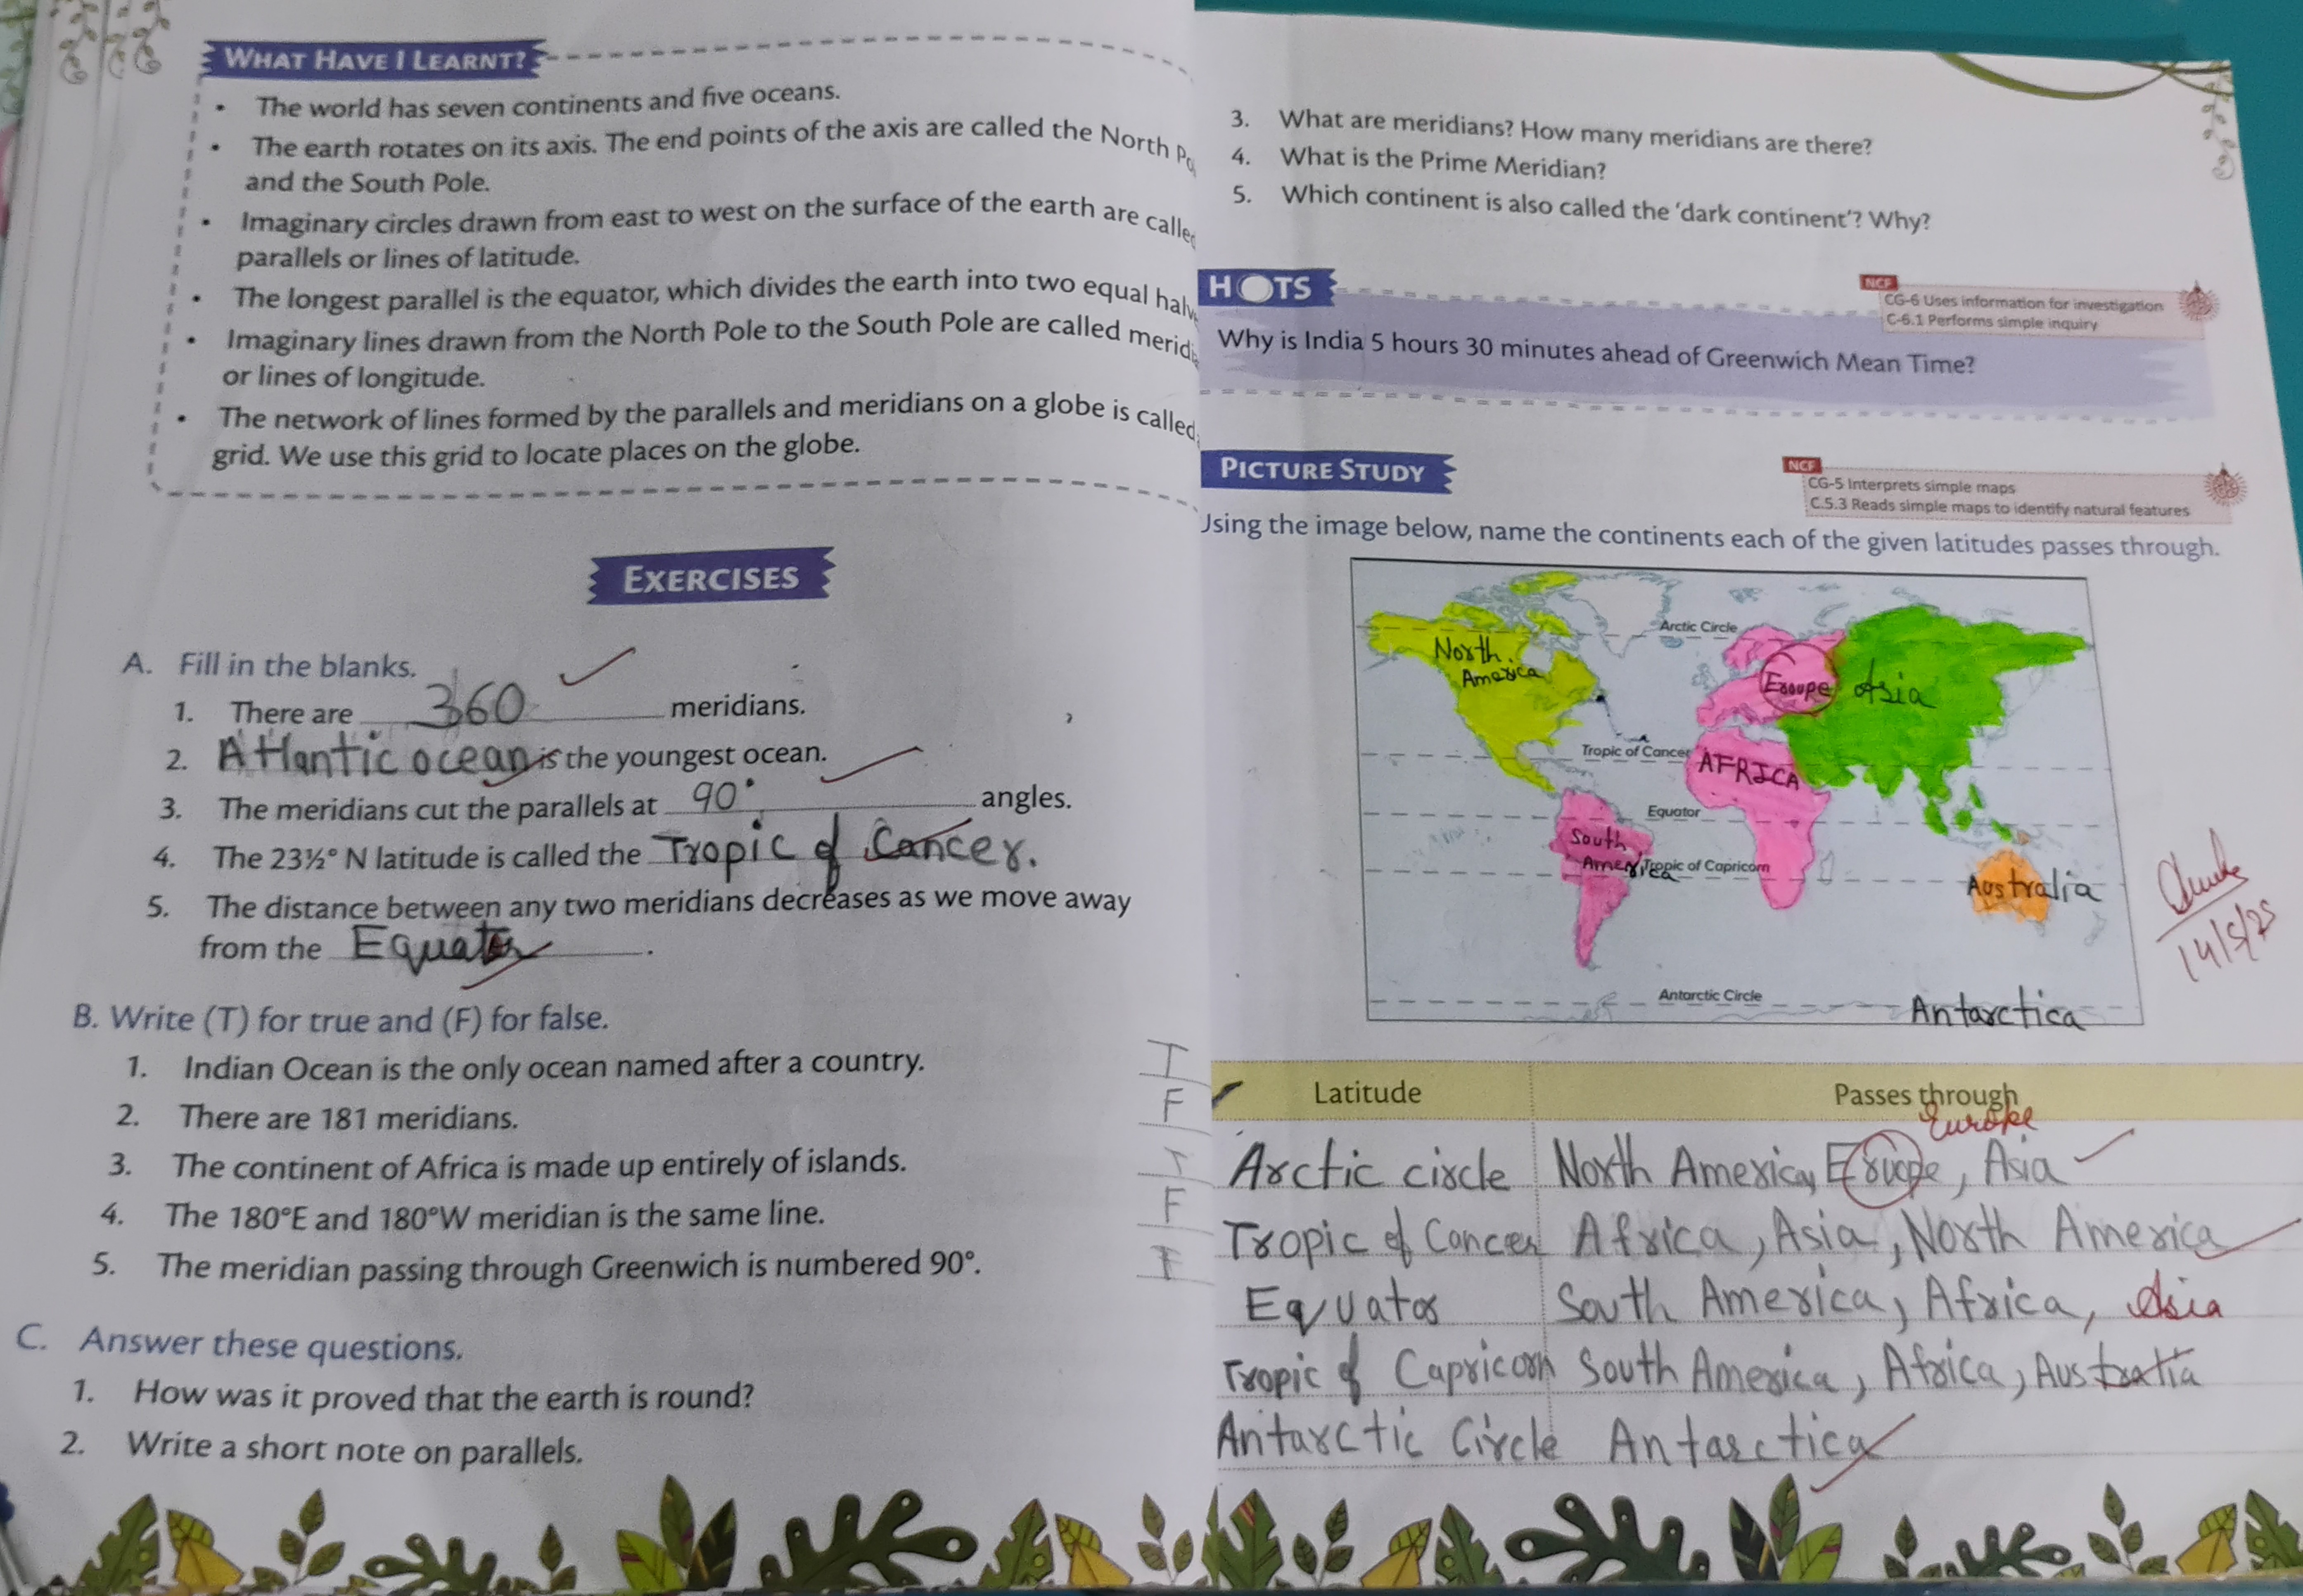 WHAT HAVE I LEARNT?
• The world has seven continents and five oceans.
• The earth rotates on its axis. The end points of the axis are called the North Po
and the South Pole.
• Imaginary circles drawn from east to west on the surface of the earth are called
parallels or lines of latitude.
• The longest parallel is the equator, which divides the earth into two equal halv
• Imaginary lines drawn from the North Pole to the South Pole are called merid
or lines of longitude.
• The network of lines formed by the parallels and meridians on a globe is called
grid. We use this grid to locate places on the globe.
EXERCISES
A. Fill in the blanks.
1. There are 360 meridians.
2. Atlantic ocean is the youngest ocean.
3. The meridians cut the parallels at 90° angles.
4. The 23½° N latitude is called the Tropic of Cancer.
5. The distance between any two meridians decreases as we move away
from the Equator.
B. Write (T) for true and (F) for false.
1. Indian Ocean is the only ocean named after a country. T
2. There are 181 meridians. F
3. The continent of Africa is made up entirely of islands. T
4. The 180°E and 180°W meridian is the same line. F
5. The meridian passing through Greenwich is numbered 90°.
C. Answer these questions.
1. How was it proved that the earth is round?
2. Write a short note on parallels.
3. What are meridians? How many meridians are there?
4. What is the Prime Meridian?
5. Which continent is also called the 'dark continent'? Why?
HOTS
NCF
CG-6 Uses information for investigation
C-6.1 Performs simple inquiry
Why is India 5 hours 30 minutes ahead of Greenwich Mean Time?
PICTURE STUDY
NCF
CG-5 Interprets simple maps
C.5.3 Reads simple maps to identify natural features
Using the image below, name the continents each of the given latitudes passes through.
Arctic Circle
North America
Eroupe
Asia
Tropic of Cancer
AFRICA
Equator
South America
Tropic of Capricorn
Australia
14/5/25
Antarctic Circle
Antarctica
Latitude Passes through
Europe
Arctic circle North America, Eroupe, Asia
Tropic of Cancer Africa, Asia, North America
Equator South America, Africa, Asia
Tropic of Capricorn South America, Africa, Australia
Antarctic Circle Antarctica